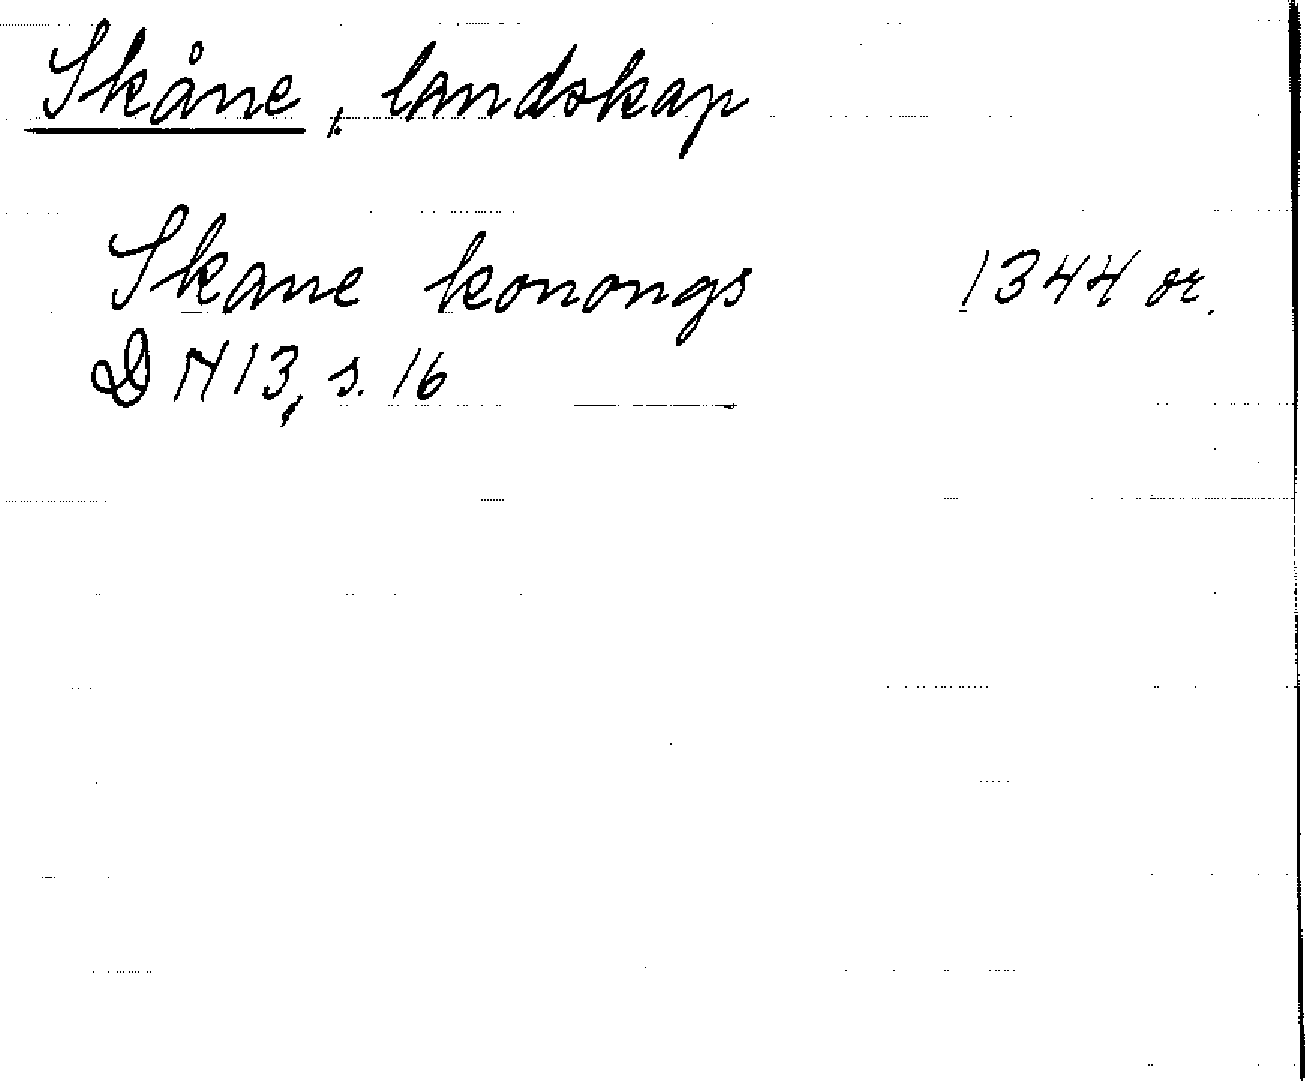 Skåne, landskap
Skane konongs 1344 or.
DN 13, s. 16